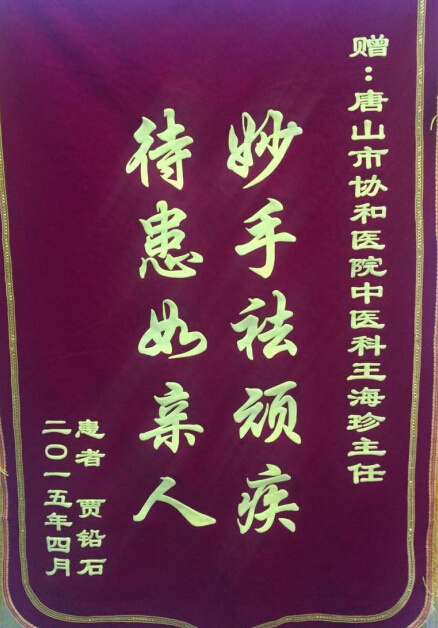 赠：唐山市协和医院中医科王海珍主任
妙手祛顽疾
待患如亲人
患者 贾铅石
二〇一五年四月